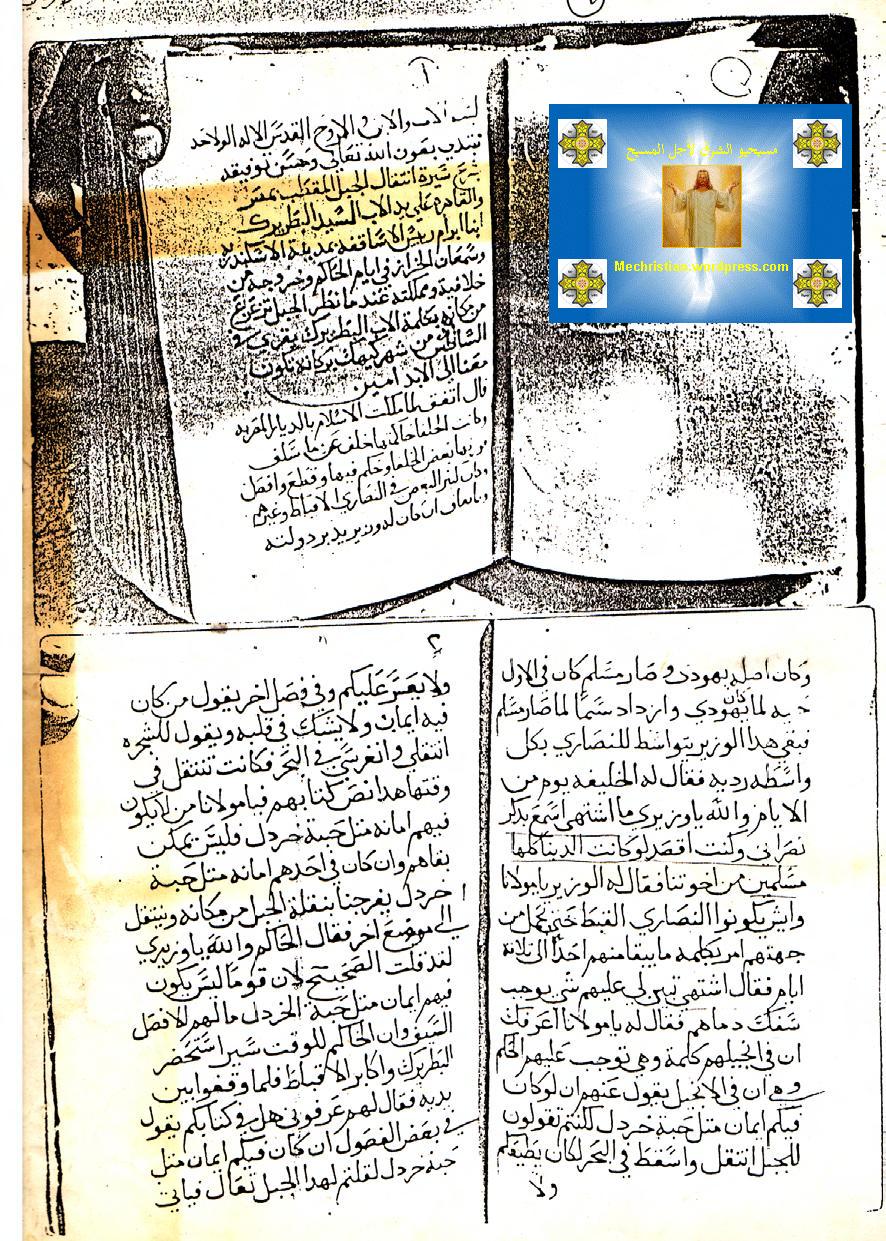 ١
بسم الاب والابن والروح القدس الاله الواحد
نبتدي بعون الله تعالي وحسن توفيقه
بشرح سيرة انتقال الجبل المقطب بمصر
والقاهره علي يد الاب السيد البطريرك
انبا ابرام رييس الاساقفه بمدينة الاسكندريه
وسمعان الخراز في ايام الحاكم وخروجه من
خلافته ومملكته عندما نظر الجبل تزعزع
من مكانه بكلمة الاب البطريرك
من شهر كيهك بركاته تكون
معنا الي الابد امين
قال اتفق لما ملكت الاسلام بالديار المصريه
وكانت الخلفا
بعض الخلفا وحكم فيها وقطع وافصل
في النصاري الاقباط وغيرهم
ان كان له وزير يدبر دولته
مسيحيو الشرق لأجل المسيح
Mechristian.wordpress.com
وكان اصله يهودي وصار مسلم كان في الاول
لما كان يهودي وازداد سما لما صار مسلم
فبقي هذا الوزير يتواسط للنصاري بكل
واسطه رديه فقال له الخليفه يوم من
الايام والله ياوزيري ما اشتهي اسمع بذكر
نصراني وكنت اقصد لو كانت الدنيا كلها
مسلمين من اخوتنا فقال له الوزير يامولانا
وايش يكونوا النصاري القبط حتي نحمل من
جهتهم امر بكلمة ما يبقا منهم احدا الي ثلاثة
ايام فقال اشتهي تبين لي عليهم شي يوجب
سفك دماهم فقال له يامولانا اعرفك
ان في انجيلهم كلمة وهي توجب عليهم الحكم
وهي ان في الانجيل يقول عنهم ان لو كان
فيكم ايمان متل حبة خردل لكنتم تقولون
للجبل انتقل واسقط في البحر لكان يطيعكم
ولا
٢
ولا يعسر عليكم وفي فصل اخر يقول من كان
فيه ايمان ولا يشك في قلبه ويقول للشجره
انتقلي وانغرسي في البحر فكانت تنتقل في
وقتها هدا نص كتابهم فيا مولانا من لا يكون
فيهم امانه متل حبة خردل فليس يمكن
بقاهم وان كان في احدهم امانه متل حبة
خردل يفرجنا بنقلة الجبل من مكانه وينتقل
الي موضع اخر فقال الحاكم والله ياوزيري
لقد قلت الصحيح لان قوما ليس يكون
فيهم ايمان متل حبة الخردل مالهم الافصل
السيف وان الحاكم للوقت سير استحضر
البطريرك واكابر الاقباط فلما وقفوا بين
يديه فقال لهم عرفوني هل في كتابكم يقول
في بعض الفصول ان كان فيكم ايمان متل
حبة خردل لقلتم لهدا الجبل تعال فياتي